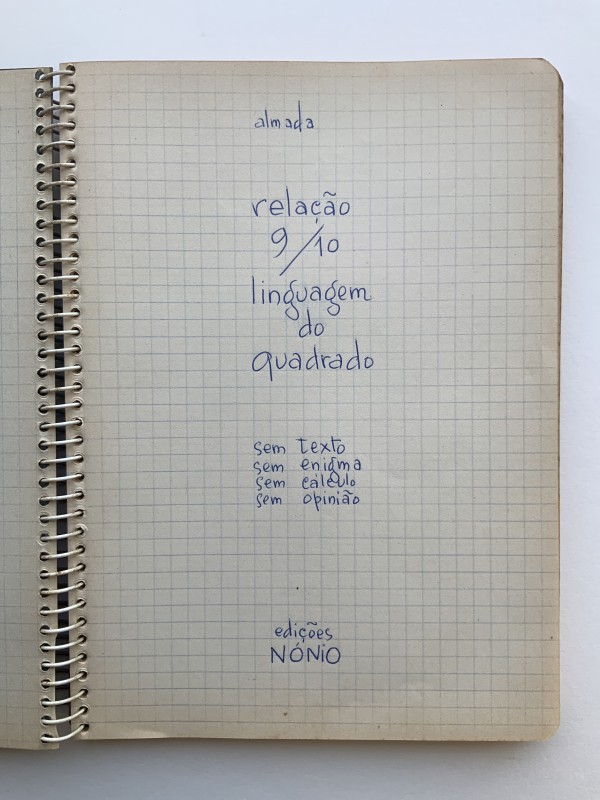 almada
relação
9/10
linguagem
do
quadrado
sem texto
sem enigma
sem cálculo
sem opinião
edições
NÓNiO